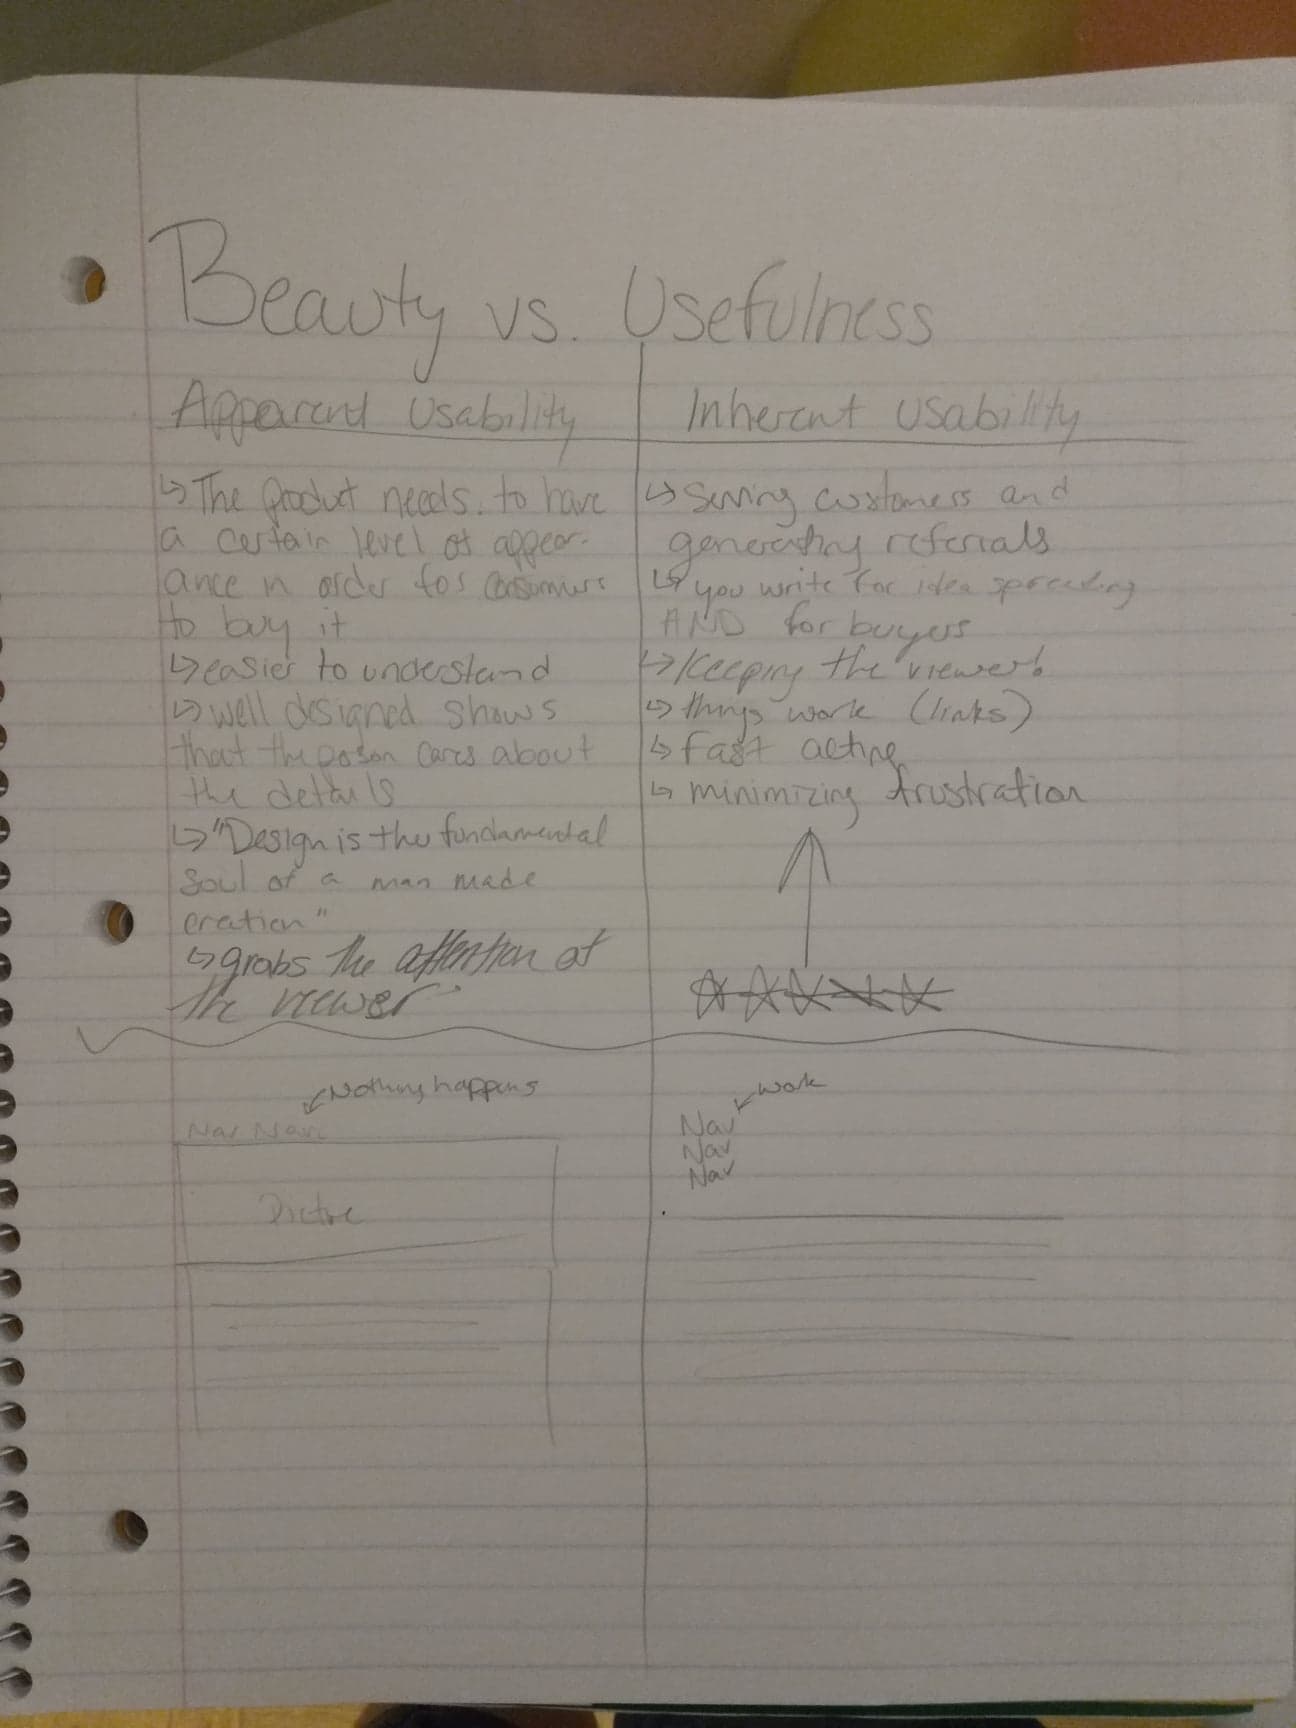 Beauty vs. Usefulness
Apparent Usability
↳ The product needs. to have
a certain level of appear-
ance in order for consumers
to buy it
↳ easier to understand
↳ well designed shows
that the person cares about
the details
↳ "Design is the fundamental
soul of a man made
creation"
↳ grabs the attention of
the viewer.
Inherent Usability
↳ Serving customers and
generating referrals
↳ you write for idea spreading
AND for buyers
↳ Keeping the viewer!
↳ things work (links)
↳ fast acting
↳ minimizing frustration
Nothing happens
Nav Nav
Picture
work
Nav
Nav
Nav